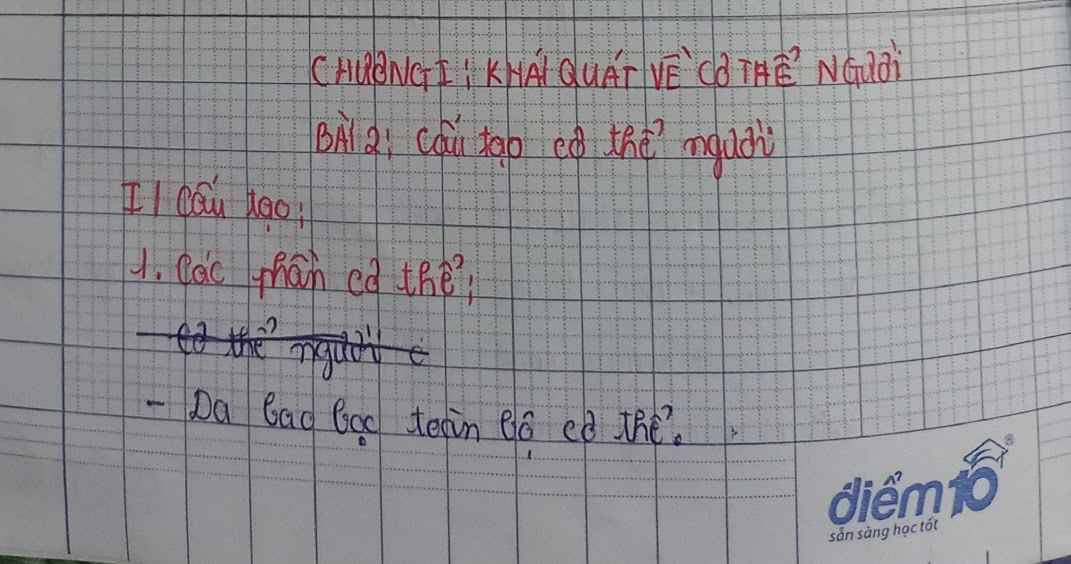 CHƯƠNG I: KHÁI QUÁT VỀ CƠ THỂ NGƯỜI
BÀI 2: Cấu tạo cơ thể người
I/ Cấu tạo:
1. Các phần cơ thể:
Cơ thể người c
- Da bao bọc toàn bộ cơ thể.
điểm 10 ®
sẵn sàng học tốt